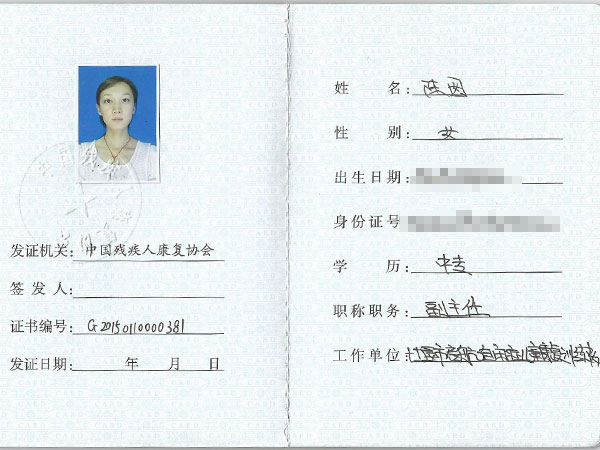 发证机关：中国残疾人康复协会
签 发 人：
证书编号：G20150110000381
发证日期： 年 月 日
姓 名：陈
性 别：女
出生日期：
身份证号
学 历：中专
职称职务：副主任
工作单位：